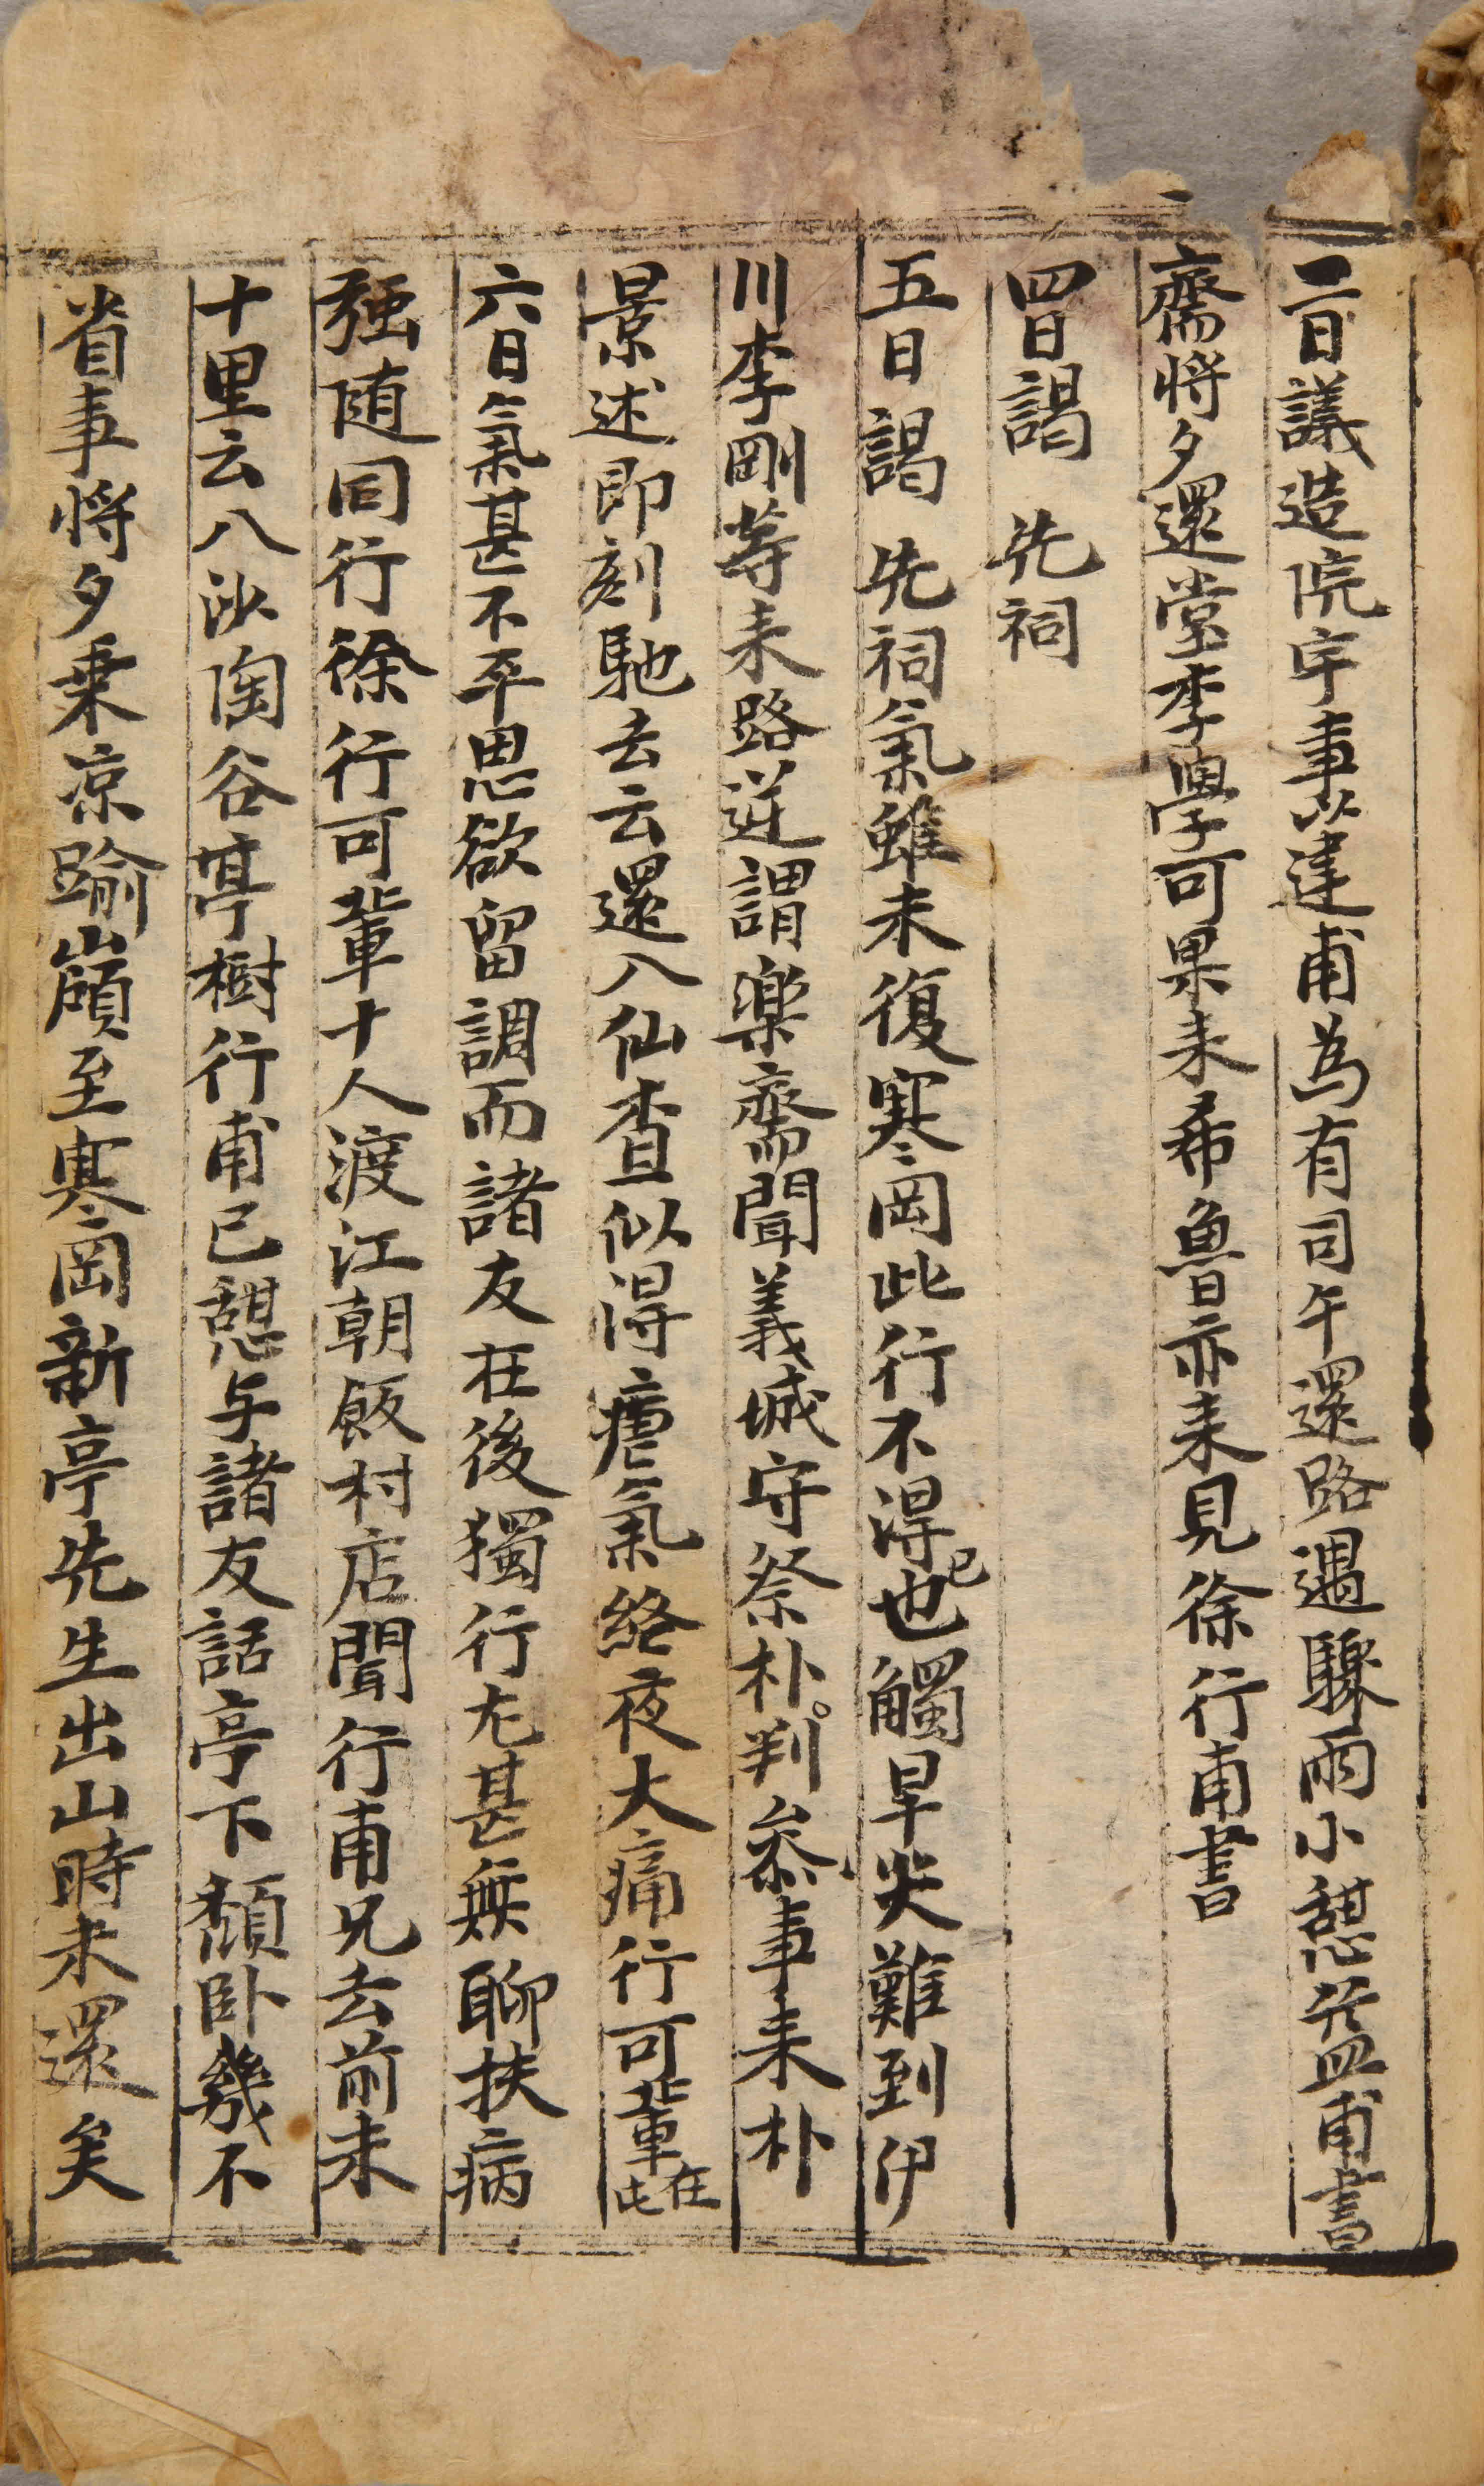 二日議造院宇事以建甫爲有司午還路遇驟雨小憩於益甫書
齋將夕還堂李學可果來希魯亦來見徐行甫書
四日謁 先祠
五日謁 先祠氣雖未復寒岡此行不得已也觸旱炎難到伊
川李剛等來路逆謂樂齋聞義城守祭朴判叅事來朴
景述即刻馳去云還入仙査似得瘧氣終夜大痛行可輩在
六日氣甚不平思欲留調而諸友在後獨行尤甚無聊扶病
强随同行徐行可輩十人渡江朝飯村店聞行甫兄去前未
十里云八沙陶谷亭樹行甫已憩与諸友話亭下頹卧幾不
省事將夕乗凉踰嶺至寒岡新亭先生出山時未還矣